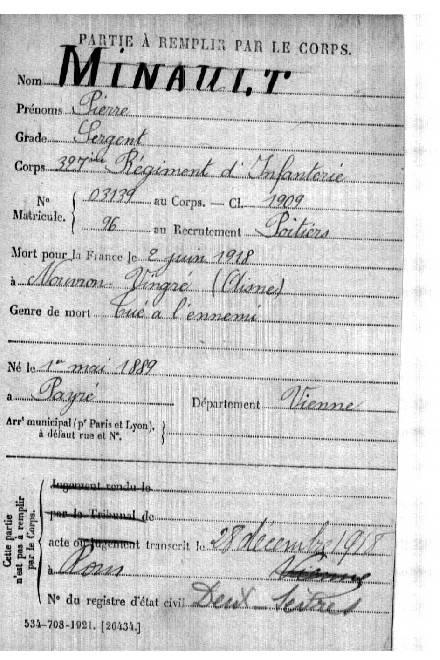 PARTIE À REMPLIR PAR LE CORPS.
Nom MINAULT
Prénoms Pierre
Grade Sergent
Corps 327ième Régiment d'Infanterie
N° Matricule. 03139 au Corps. — Cl. 1909
96 au Recrutement Poitiers
Mort pour la France le 2 juin 1918
à Nouvron-Vingré (Aisne)
Genre de mort tué à l'ennemi
Né le 1er mai 1889
à Payré Département Vienne
Arrt municipal (pr Paris et Lyon),
à défaut rue et N°.
Cette partie n'est pas à remplir par le Corps.
Jugement rendu le
par le Tribunal de
acte ou jugement transcrit le 28 décembre 1918
à Rom Vienne
N° du registre d'état civil Deux Sèvres
534-708-1921. [26434.]